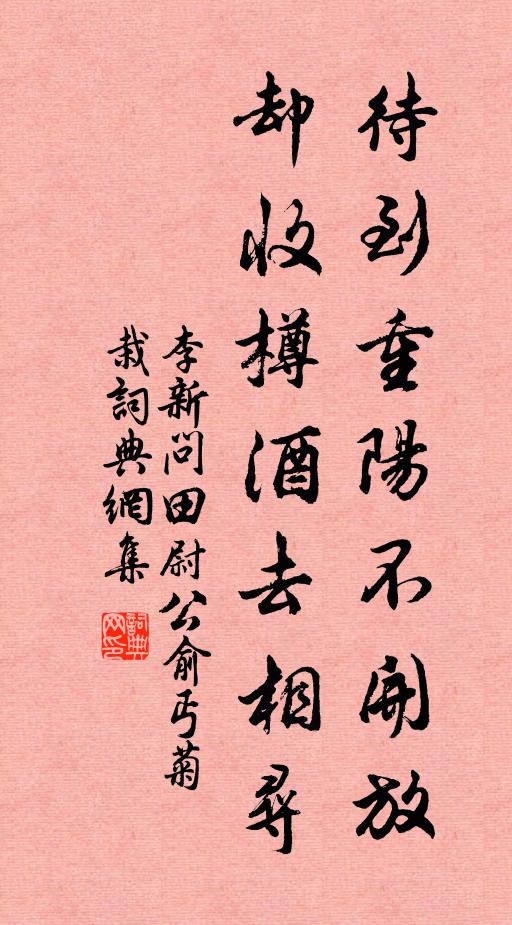 待到重陽不開放
却收樽酒去相尋
李新問田尉公俞丐菊
栽詞典網集
詞典
网印